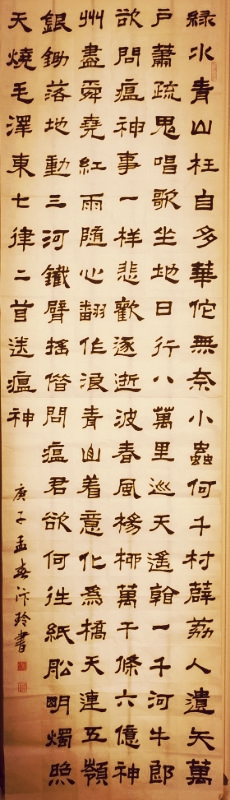 綠水青山枉自多華佗無奈小蟲何千村薜荔人遺矢萬
戶蕭疏鬼唱歌坐地日行八萬里巡天遙看一千河牛郎
欲問瘟神事一樣悲歡逐逝波春風楊柳萬千條六億神
州盡舜堯紅雨隨心翻作浪青山着意化為橋天連五嶺
銀鋤落地動三河鐵臂搖借問瘟君欲何往紙船明燭照
天燒毛澤東七律二首送瘟神
庚子孟春汴玲書